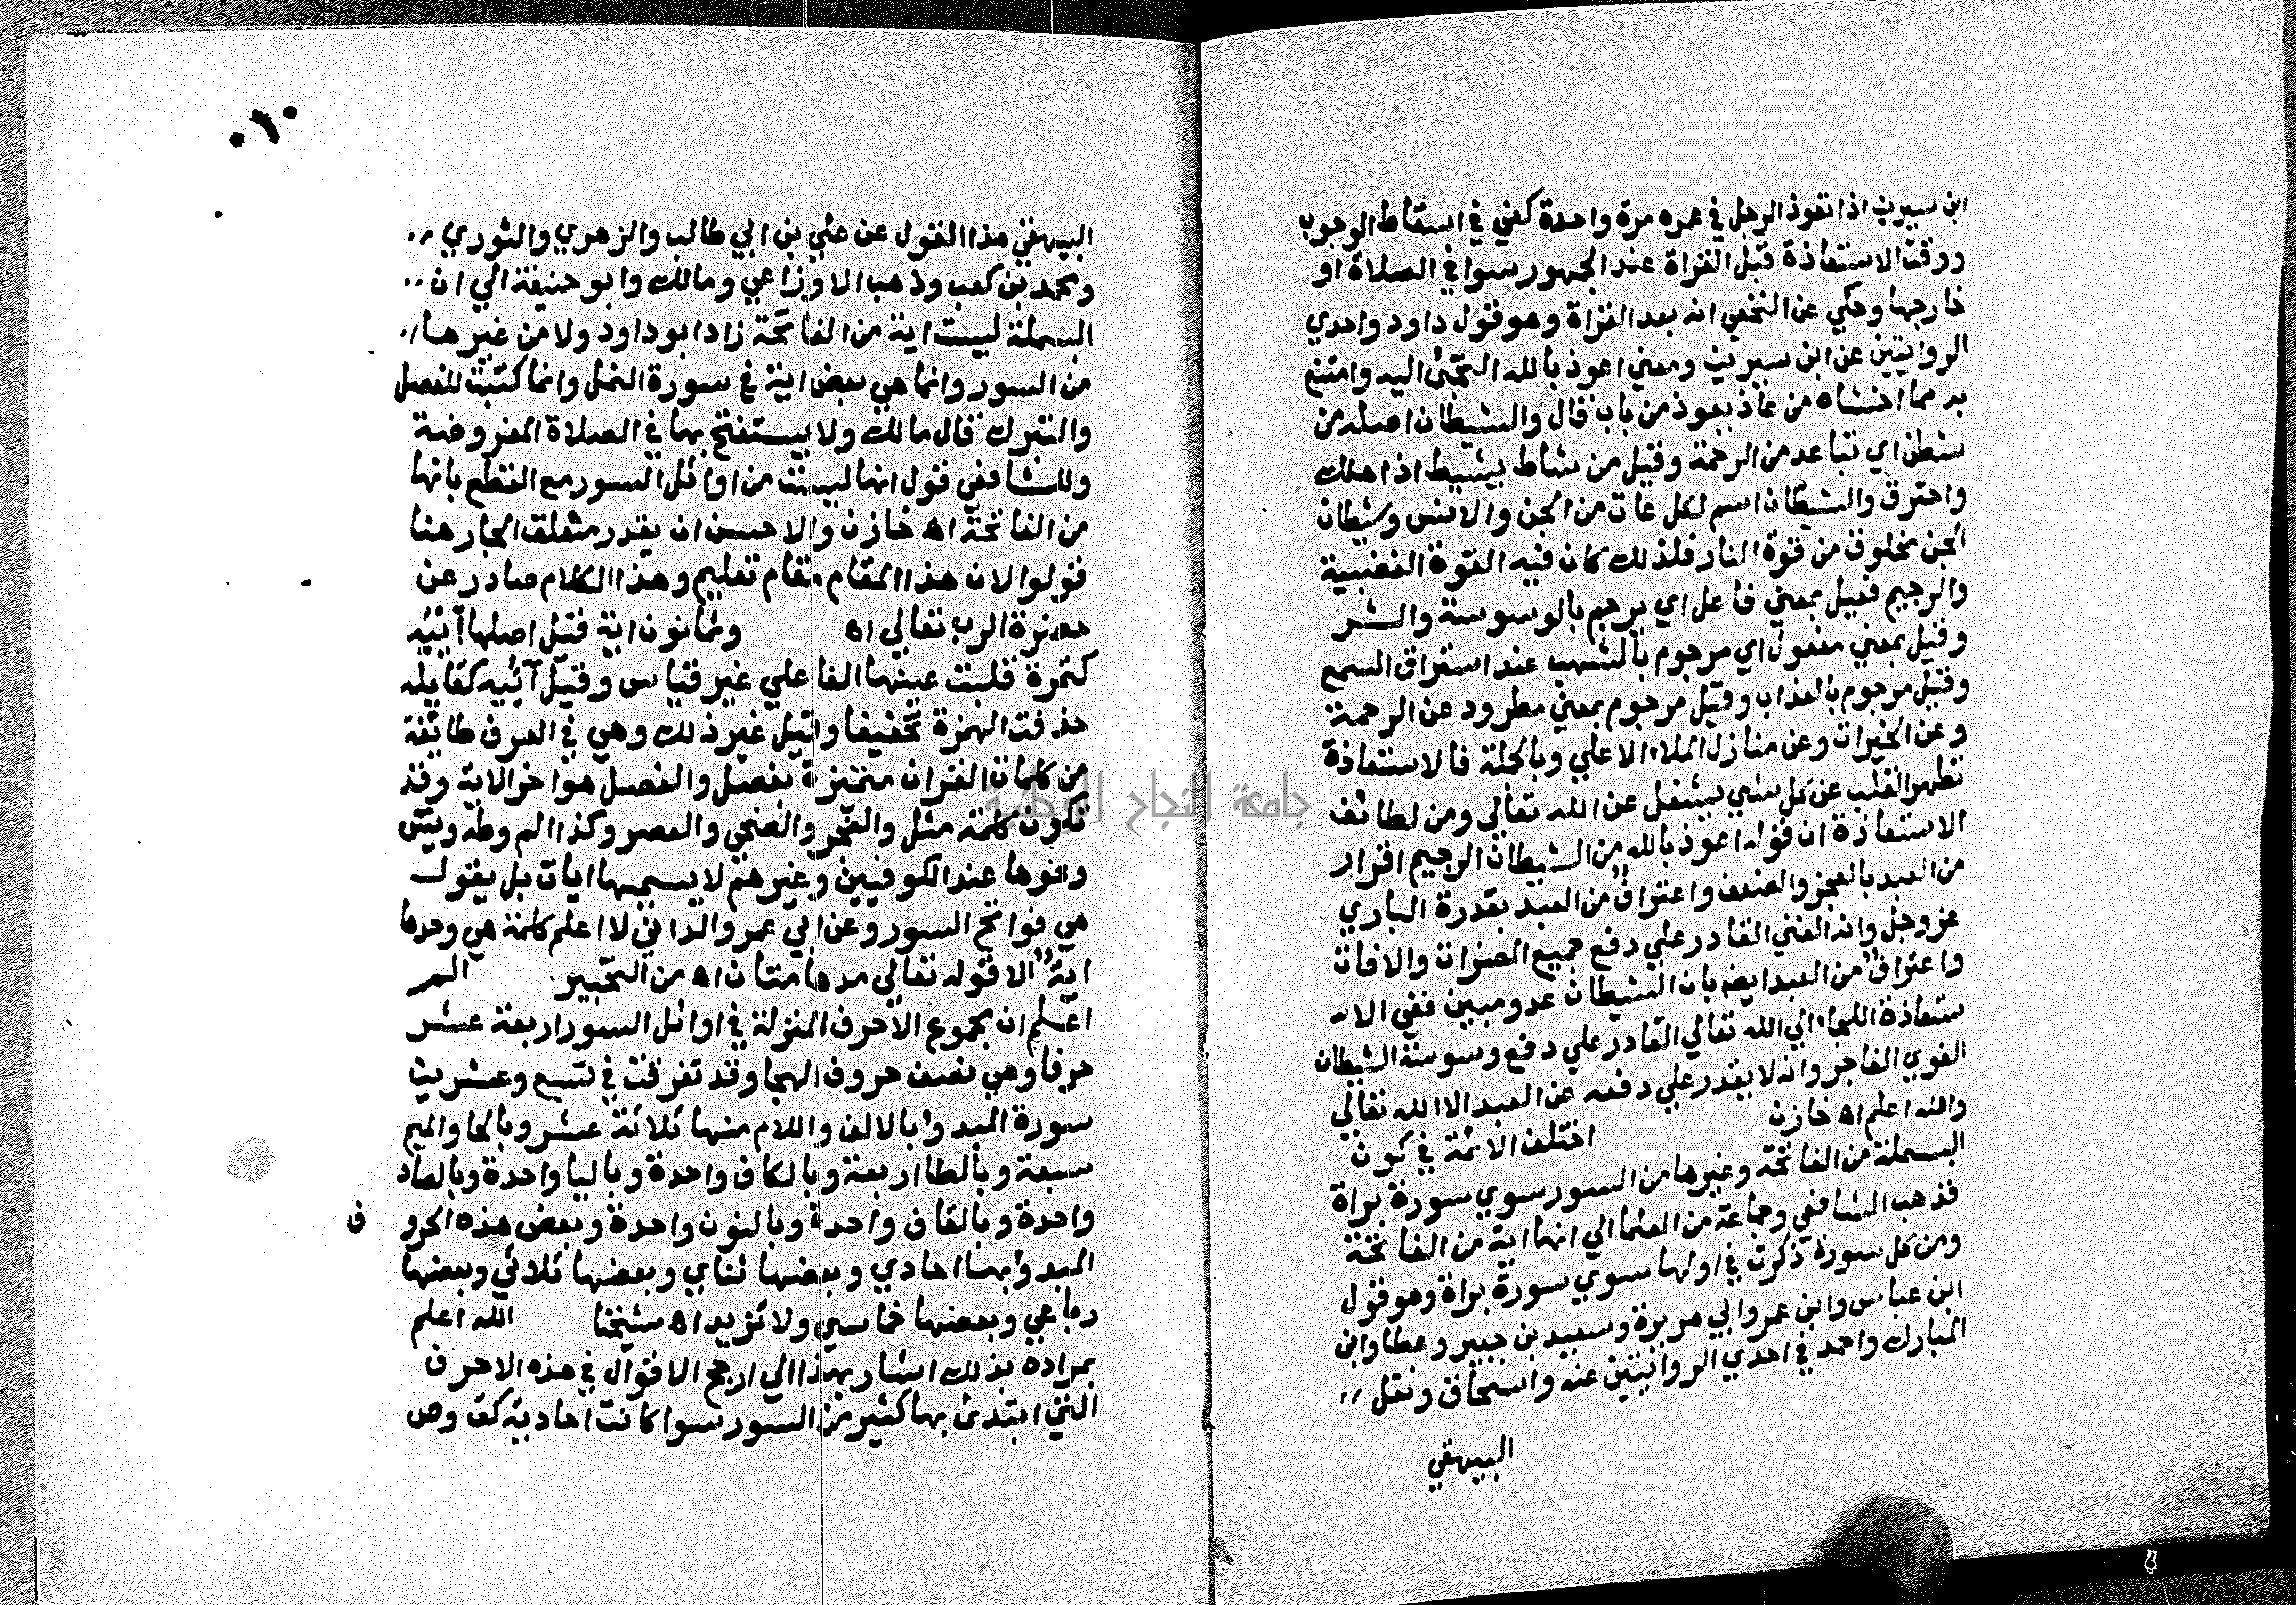 ابن سيرين اذا تعوذ الرجل في عمره مرة واحدة كفي في اسقاط الوجوب
ووقت الاستعاذة قبل القراة عند الجمهور سوا في الصلاة او
خارجها وحكي عن النخعي انه بعد القراة وهو قول داود واحدي
الروايتين عن ابن سيرين ومعني اعوذ بالله التجئ اليه وامتنع
به مما اخشاه من عاذ يعوذ من باب قال والشيطان اصله من
شطن اي تباعد من الرحمة وقيل من شاط يشيط اذا هلك
واحترق والشيطان اسم لكل عات من الجن والانس وشيطان
الجن مخلوق من قوة النار فلذلك كان فيه القوة الغضبية
والرجيم فعيل بمعني فاعل اي يرجم بالوسوسة والشر
وقيل بمعني مفعول اي مرجوم بالشهب عند استراق السمع
وقيل مرجوم بالعذاب وقيل مرجوم بمعني مطرود عن الرحمة
وعن الخيرات وعن منازل الملاء الاعلي وبالجملة فالاستعاذة
تطهر القلب عن كل شي يشغل عن الله تعالي ومن لطائف
الاستعاذة ان قوله اعوذ بالله من الشيطان الرجيم اقرار
من العبد بالعجز والضعف واعتراف من العبد بقدرة الباري
عز وجل وانه الغني القادر علي دفع جميع المضرات والافات
واعتراف من العبد ايضه بان الشيطان عدو مبين ففي الا
ستعاذة اللجاء الي الله تعالي القادر علي دفع وسوسة الشيطان
الغوي الفاجر وانه لا يقدر علي دفعه عن العبد الا الله تعالي
والله اعلم اه خازن اختلف الائمة في كون
البسملة من الفاتحة وغيرها من السور سوي سورة براة
فذهب الشافعي وجماعة من العلما الي انها اية من الفاتحة
ومن كل سورة ذكرت في اولها سوي سورة براة وهو قول
ابن عباس وابن عمر وابي هريرة وسعيد بن جبير وعطا وابن
المبارك واحمد في احدي الروايتين عنه واسحاق ونقل
البيهقي
٠١٠
البيهقي هذا القول عن علي بن ابي طالب والزهري والثوري
ومحمد بن كعب وذهب الاوزاعي ومالك وابو حنيفة الي ان
البسملة ليست اية من الفاتحة زاد ابو داود ولا من غيرها
من السور وانما هي بعض اية في سورة النمل وانما كتبت للفصل
والتبرك قال مالك ولا يستفتح بها في الصلاة المفروضة
وللشافعي قول انها ليست من اوائل السور مع القطع بانها
من الفاتحة اه خازن والاحسن ان يقدر متعلق الجار هنا
قولوا لان هذا المقام مقام تعليم وهذا الكلام صادر عن
حضرة الرب تعالي اه وثمانون اية قيل اصلها آئيه
كتمرة قلبت عينها الفا علي غير قياس وقيل آئيه كقايله
حذفت الهمزة تخفيفا وقيل غير ذلك وهي في العرف طائفة
من كلمات القران متميزة بفصل والفصل هو اخر الاية وقد
تكون كلمة مثل والفجر والضحي والعصر وكذا الم وطه ويس
ونحوها عند الكوفيين وغيرهم لا يسميها ايات بل يقول
هي فواتح السور وعن ابي عمرو الداني لا اعلم كلمة هي وحدها
اية الا قوله تعالي مدهامتان اه من التحبير الم
اعلم ان مجموع الاحرف المنزلة في اوائل السور اربعة عشر
حرفا وهي نصف حروف الهجا وقد تفرقت في تسع وعشرين
سورة المبدوا بالالف واللام منها ثلاثة عشر وبالحا والميم
سبعة وبالطا اربعة وبالكاف واحدة وباليا واحدة وبالصاد
واحدة وبالقاف واحدة وبالنون واحدة وبعض هذه الحرو ف
المبدوا بها احادي وبعضها ثناي وبعضها ثلاثي وبعضها
رباعي وبعضها خماسي ولا تزيد اه شيخنا الله اعلم
بمراده بذلك اشار بهذا الي ارجح الاقوال في هذه الاحرف
التي ابتدئ بها كثير من السور سوا كانت احادية كق وص